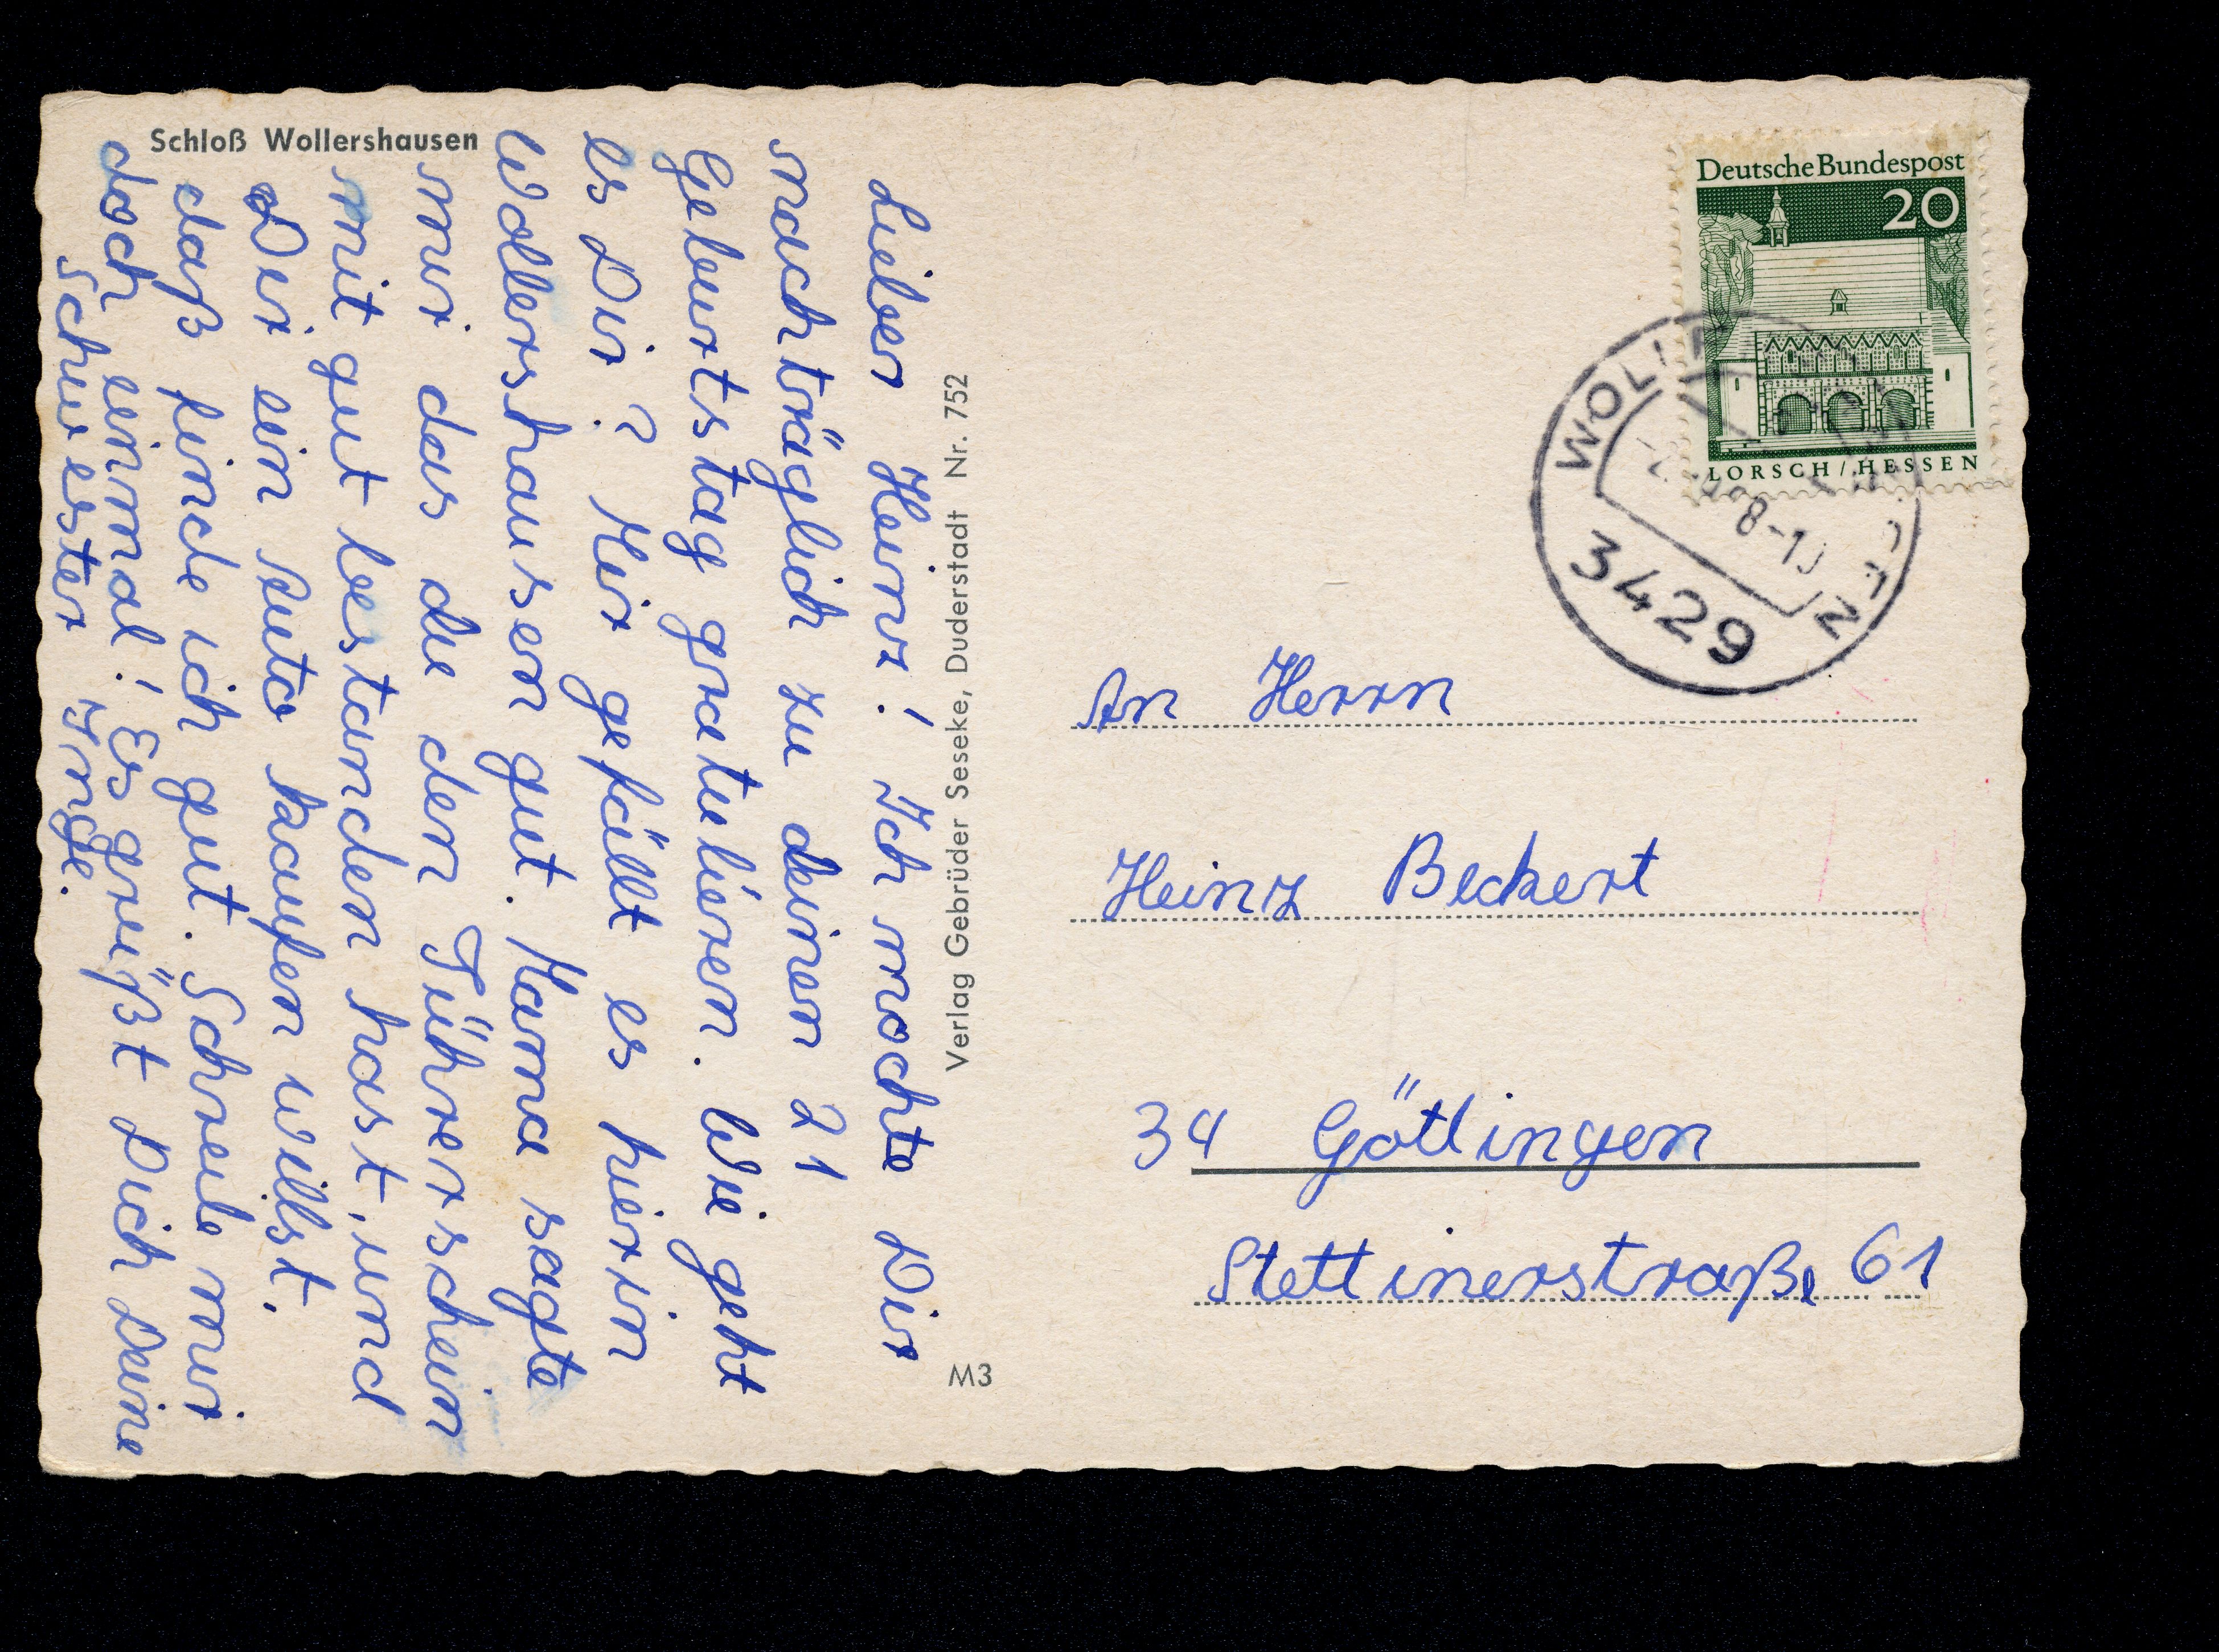 Schloß Wollershausen
Lieber Heinz! Ich mochte Dir
nachträglich zu deinen 21
Geburtstag gratulieren. Wie geht
es Dir? Mir gefällt es hier in
Wollershausen gut. Mama sagte
mir das du den Führerschein
mit gut bestanden hast, und
Dir ein Auto kaufen willst.
daß finde ich gut. Schreib mir
doch einmal! Es grüßt Dich Deine
Schwester Inge.
Verlag Gebrüder Seseke, Duderstadt Nr. 752
M3
Deutsche Bundespost
20
LORSCH/HESSEN
3429
An Herrn
Heinz Beckert
34 Göttingen
Stettinerstraße 61